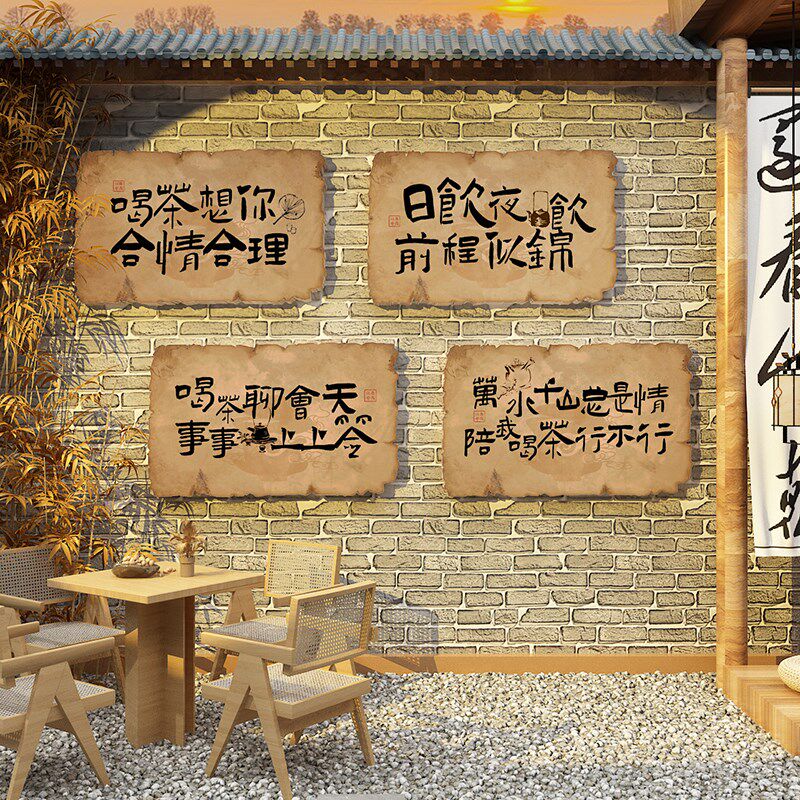 喝茶想你
合情合理
日飲夜飲
前程似錦
喝茶聊會天
事事上上签
萬水千山总是情
陪我喝茶行不行